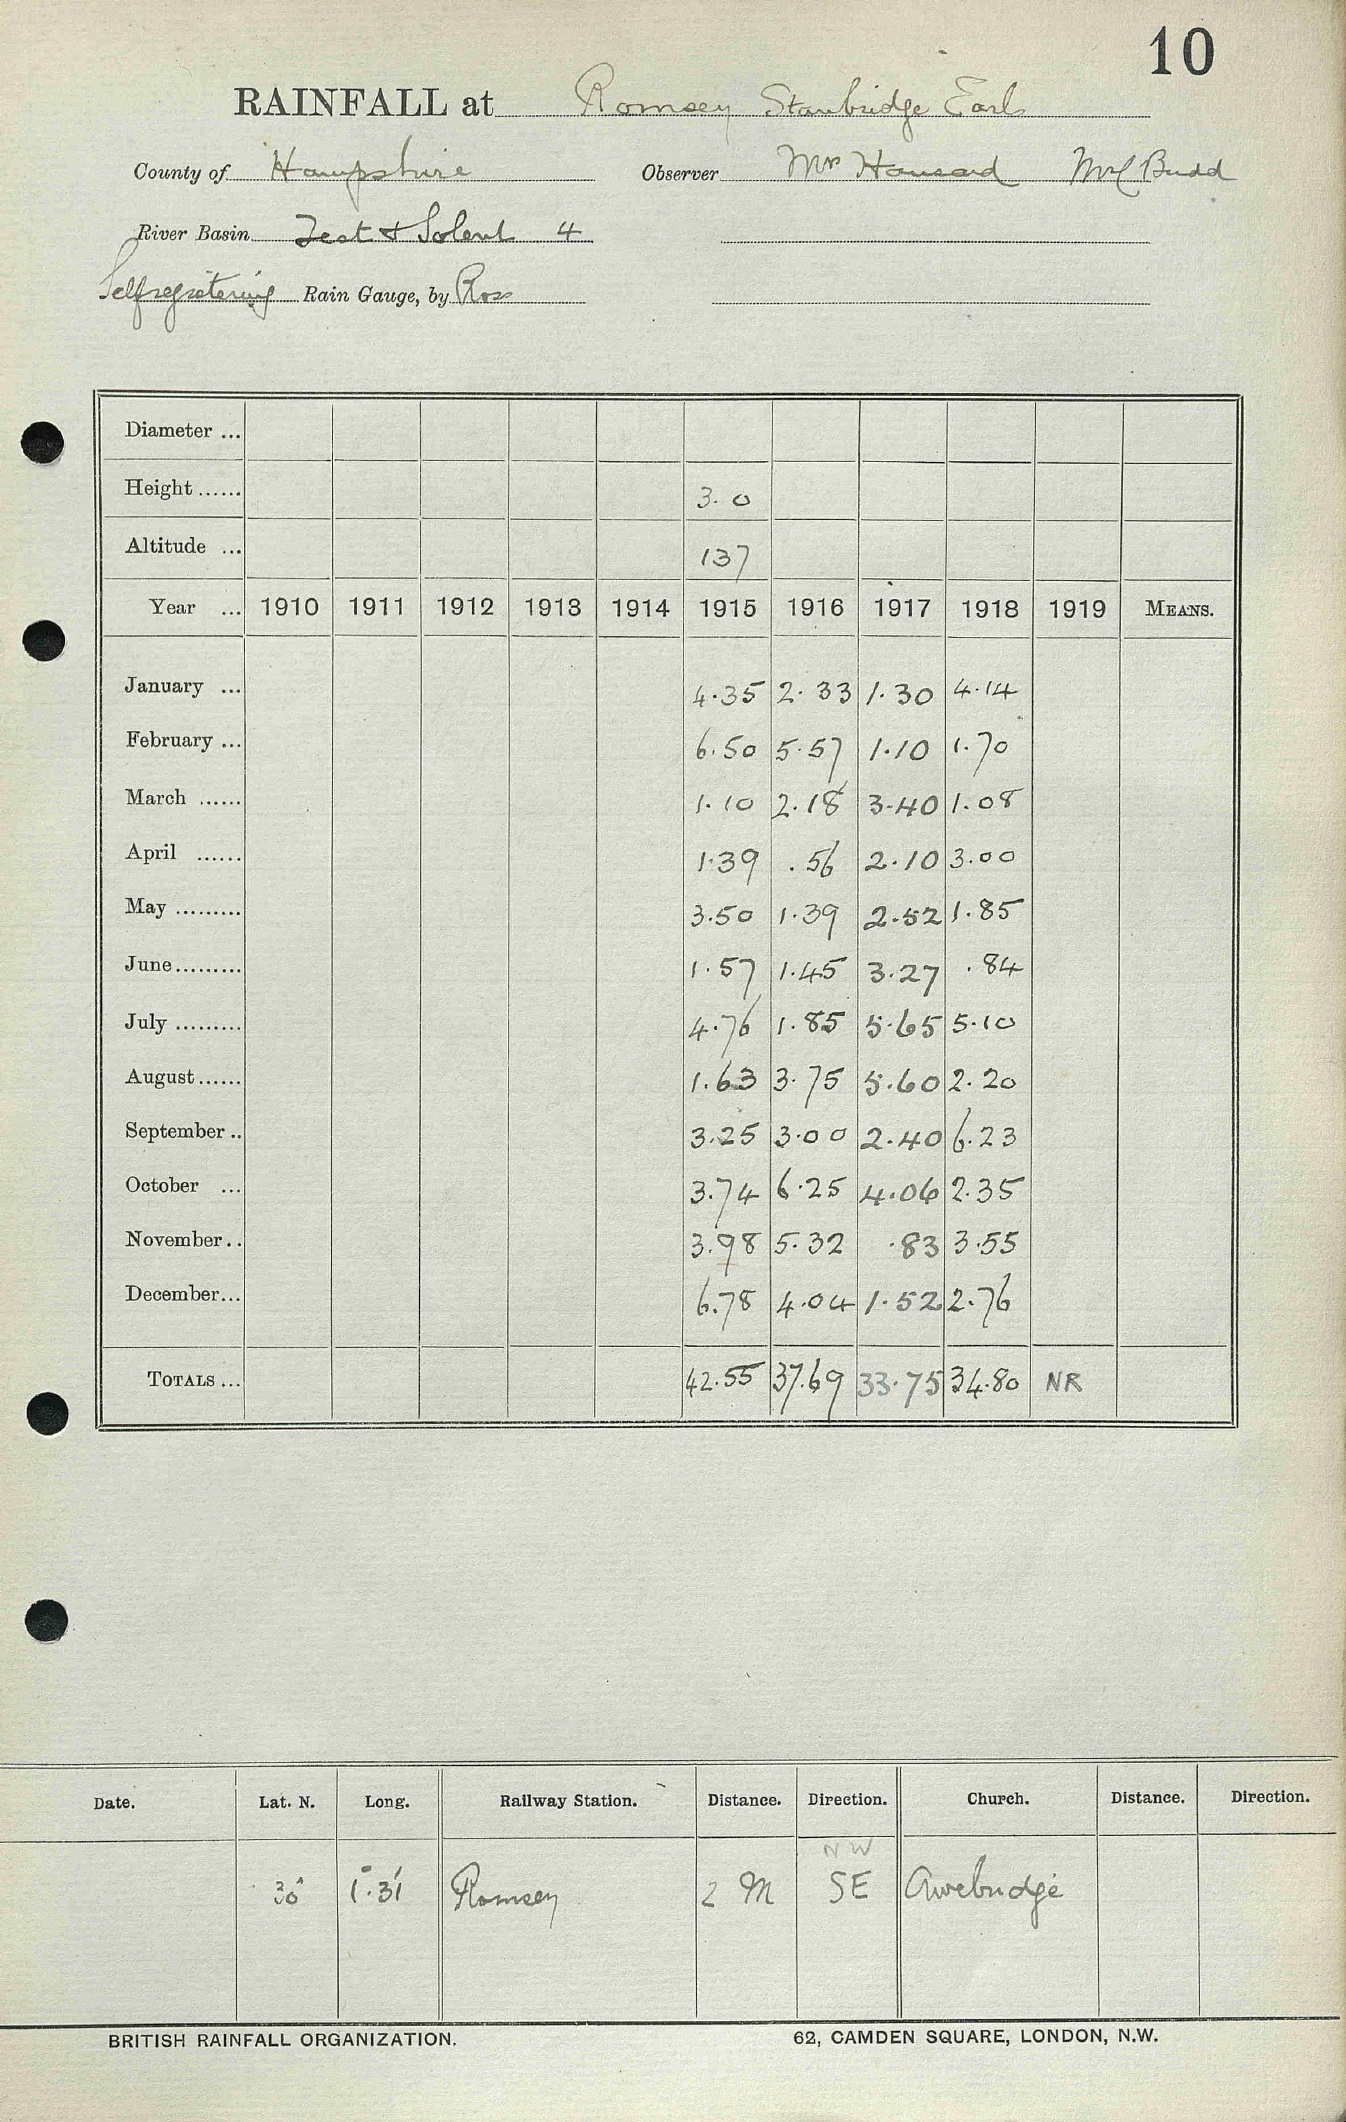 10
RAINFALL at Romsey Stanbridge Earls
County of Hampshire Observer Mrs Hansard Budd
River Basin Test & Solent 4
Selfregistering Rain Gauge, by Ross
Diameter ...
Height ...... 3.0
Altitude ... 137
Year ... 1910 1911 1912 1913 1914 1915 1916 1917 1918 1919 MEANS.
January ... 4.35 2.33 1.30 4.14
February ... 6.50 5.57 1.10 1.70
March ...... 1.10 2.18 3.40 1.08
April ...... 1.39 .56 2.10 3.00
May ......... 3.50 1.39 2.52 1.85
June ......... 1.57 1.45 3.27 .84
July ......... 4.76 1.85 5.65 5.10
August ...... 1.63 3.75 5.60 2.20
September .. 3.25 3.00 2.40 6.23
October ... 3.74 6.25 4.06 2.35
November .. 3.98 5.32 .83 3.55
December ... 6.78 4.04 1.52 2.76
TOTALS ... 42.55 37.69 33.75 34.80 NR
Date. Lat. N. Long. Railway Station. Distance. Direction. Church. Distance. Direction.
NW
1° 31' Romsey 2 M SE Awebridge
BRITISH RAINFALL ORGANIZATION. 62, CAMDEN SQUARE, LONDON, N.W.